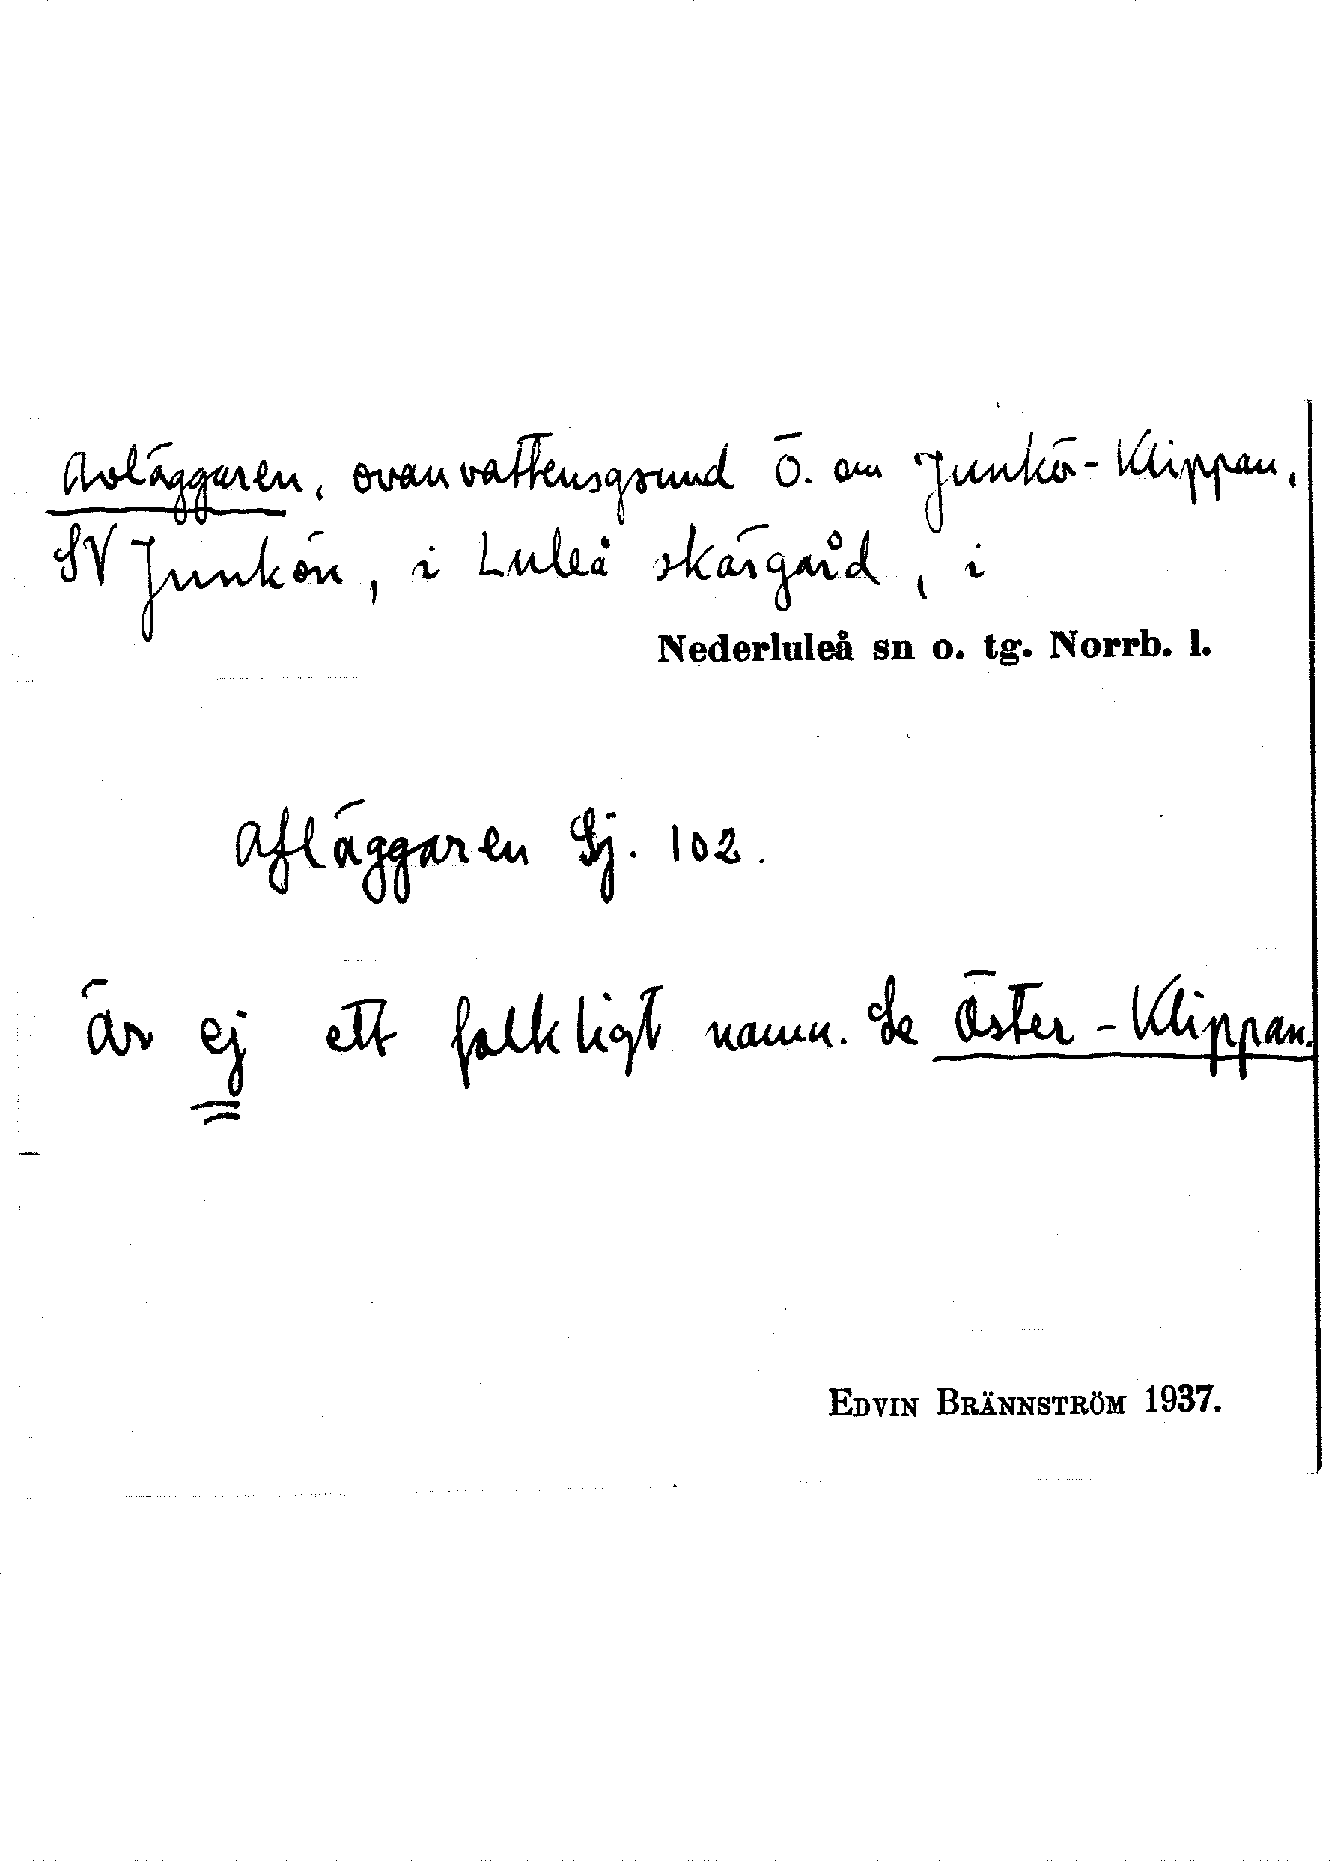 Avläggaren, ovanvattensgrund Ö. om Junkö-Klippan,
SV Junkön, i Luleå skärgård, i
Nederluleå sn o. tg. Norrb. l.
Afläggaren Sj. 102.
Är ej ett folkligt namn. Se Öster-Klippan.
EDVIN BRÄNNSTRÖM 1937.